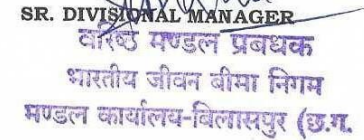 SR. DIVISIONAL MANAGER
वरिष्ठ मण्डल प्रबंधक
भारतीय जीवन बीमा निगम
मण्डल कार्यालय-बिलासपुर (छ.ग.